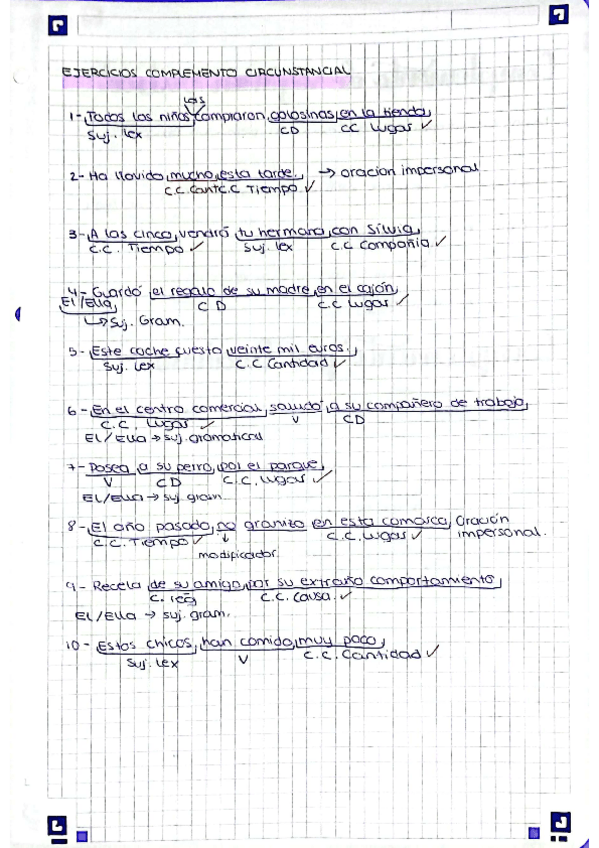 EJERCICIOS COMPLEMENTO CIRCUNSTANCIAL
las
1-Todos los niños compraron golosinas en la tienda
Suj. lex CD CC Lugar ✓
2- Ha llovido mucho esta tarde. → oracion impersonal
C.C. Cant C.C Tiempo ✓
3- A las cinco vendrá tu hermano con Silvia
C.C. Tiempo ✓ Suj. lex C.C Compañia ✓
4- Guardó el regalo de su madre en el cajón
El/Ella CD C.C Lugar ✓
↳ Suj. Gram.
5- Este coche cuesta veinte mil euros.
Suj. Lex C.C Cantidad ✓
6- En el centro comercial, saludó a su compañero de trabajo
C.C. Lugar ✓ V CD
El/Ella → suj. gramatical
7- Pasea a su perro por el parque
V CD C.C. Lugar ✓
El/Ella → suj. gram.
8- El año pasado no granizo en esta comarca Oración
C.C. Tiempo ✓ ↓ C.C. Lugar ✓ impersonal.
modificador
9- Recela de su amigo por su extraño comportamiento
C. reg C.C. Causa. ✓
El/Ella → suj. gram.
10- Estos chicos han comido muy poco
Suj. Lex V C.C. Cantidad ✓